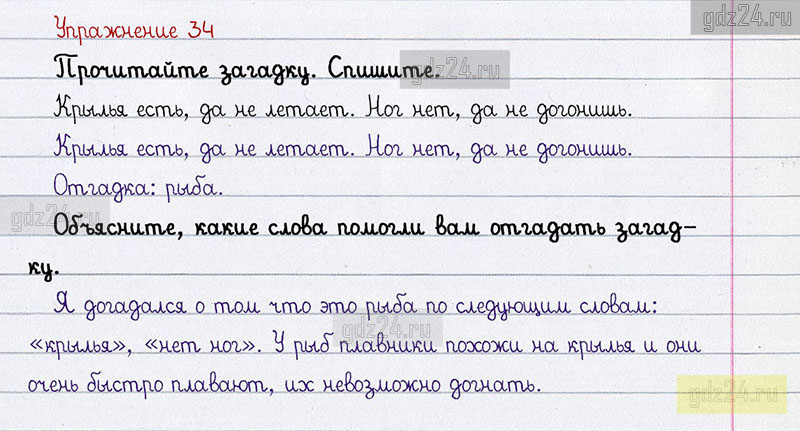 gdz24.ru
Упражнение 34
Прочитайте загадку. Спишите.
gdz24.ru
Крылья есть, да не летает. Ног нет, да не догонишь.
Крылья есть, да не летает. Ног нет, да не догонишь.
Отгадка: рыба.
gdz24.ru
Объясните, какие слова помогли вам отгадать загад-
ку.
Я догадался о том что это рыба по следующим словам:
gdz24.ru
«крылья», «нет ног». У рыб плавники похожи на крылья и они
очень быстро плавают, их невозможно догнать.
gdz24.ru